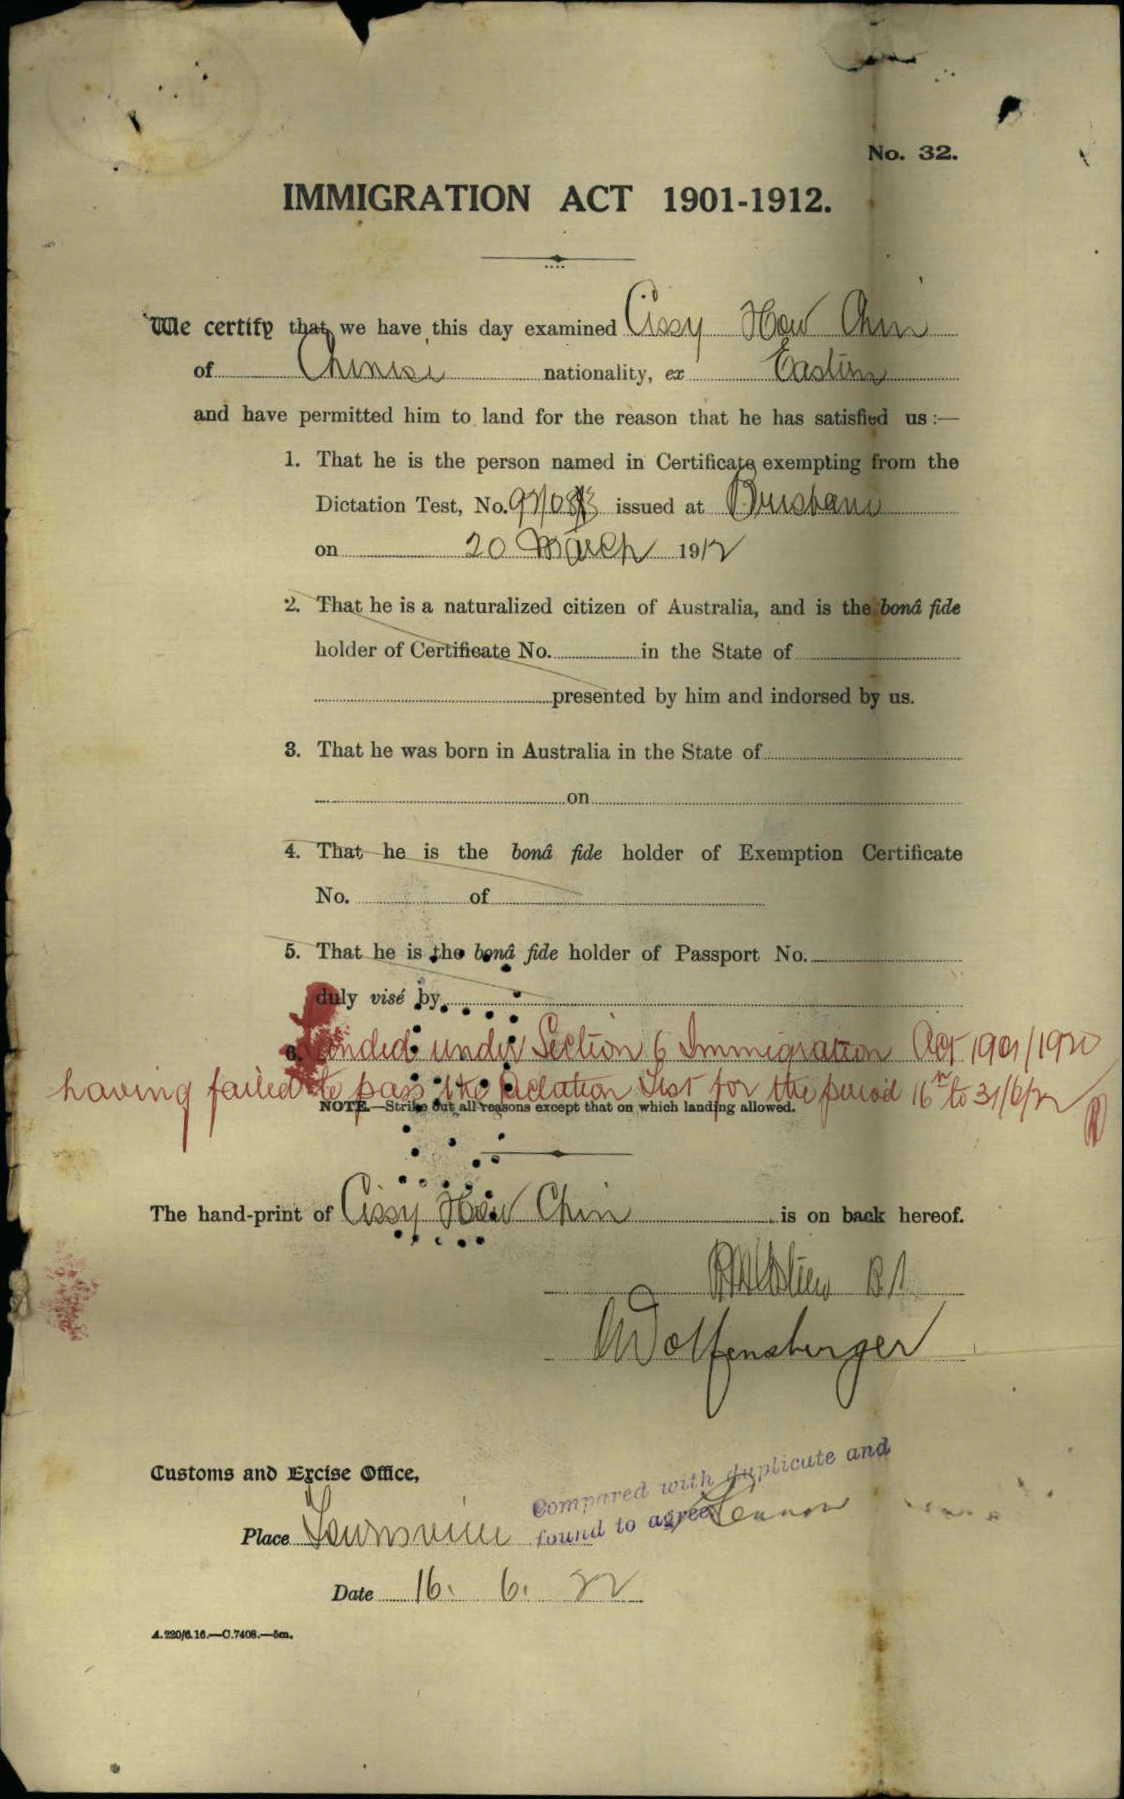 No. 32.
IMMIGRATION ACT 1901-1912.
We certify that we have this day examined Cissy How Chin
of Chinese nationality, ex Eastern
and have permitted him to land for the reason that he has satisfied us:—
1. That he is the person named in Certificate exempting from the
Dictation Test, No. issued at Brisbane
on 20 March 1912
2. That he is a naturalized citizen of Australia, and is the bonâ fide
holder of Certificate No. in the State of
presented by him and indorsed by us.
3. That he was born in Australia in the State of
on
4. That he is the bonâ fide holder of Exemption Certificate
No. of
5. That he is the bonâ fide holder of Passport No.
duly visé by
6. Landed under Section 6 Immigration Act 1901/1920
having failed to pass the Dictation Test for the period 16th to 31/6/22
NOTE.—Strike out all reasons except that on which landing allowed.
The hand-print of Cissy How Chin is on back hereof.
Wolfensberger
Customs and Excise Office,
Compared with duplicate and
found to agree Lennon
Place Townsville
Date 16. 6. 22
A.220/6.16.—C.7408.—5m.